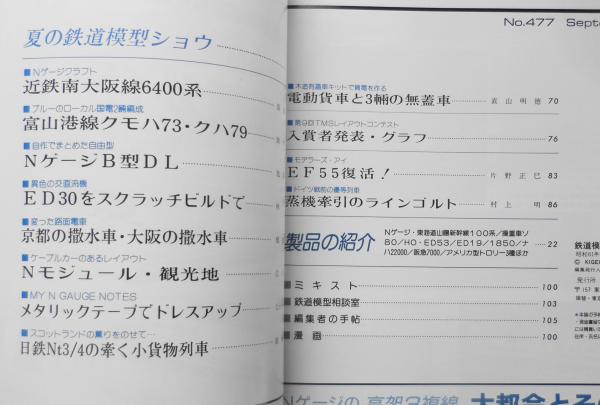 夏の鉄道模型ショウ
■Nゲージクラフト
近鉄南大阪線6400系
■ブルーのローカル国電2輛編成
富山港線クモハ73・クハ79
■自作でまとめた自由型
NゲージB型DL
■異色の交直流機
ED30をスクラッチビルドで
■変った路面電車
京都の撒水車・大阪の撒水車
■ケーブルカーのあるレイアウト
Nモジュール・観光地
■MY N GAUGE NOTES
メタリックテープでドレスアップ
■スコットランドの薫りをのせて…
日鉄Nt3/4の牽く小貨物列車
No.477 Septe
■木造有蓋車キットで買電を作る
電動貨車と3輛の無蓋車 直山明徳 70
■第9回TMSレイアウトコンテスト
入賞者発表・グラフ 76
■モデラーズ・アイ
EF55復活! 片野正巳 83
■ドイツ戦前の優等列車
蒸機牽引のラインゴルト 村上明 86
製品の紹介
Nゲージ・東海道山陽新幹線100系/操重車ソ
80/HO・ED53/ED19/1850/ナ
ハ22000/阪急7000/アメリカ型トロリー3種ほか
22
■ミキスト 100
■鉄道模型相談室 103
■編集者の手帖 105
■漫画 100
鉄道模
昭和61年
© KIGE
発行所
〒157 東
Nゲージの高架3複線 大都会とその